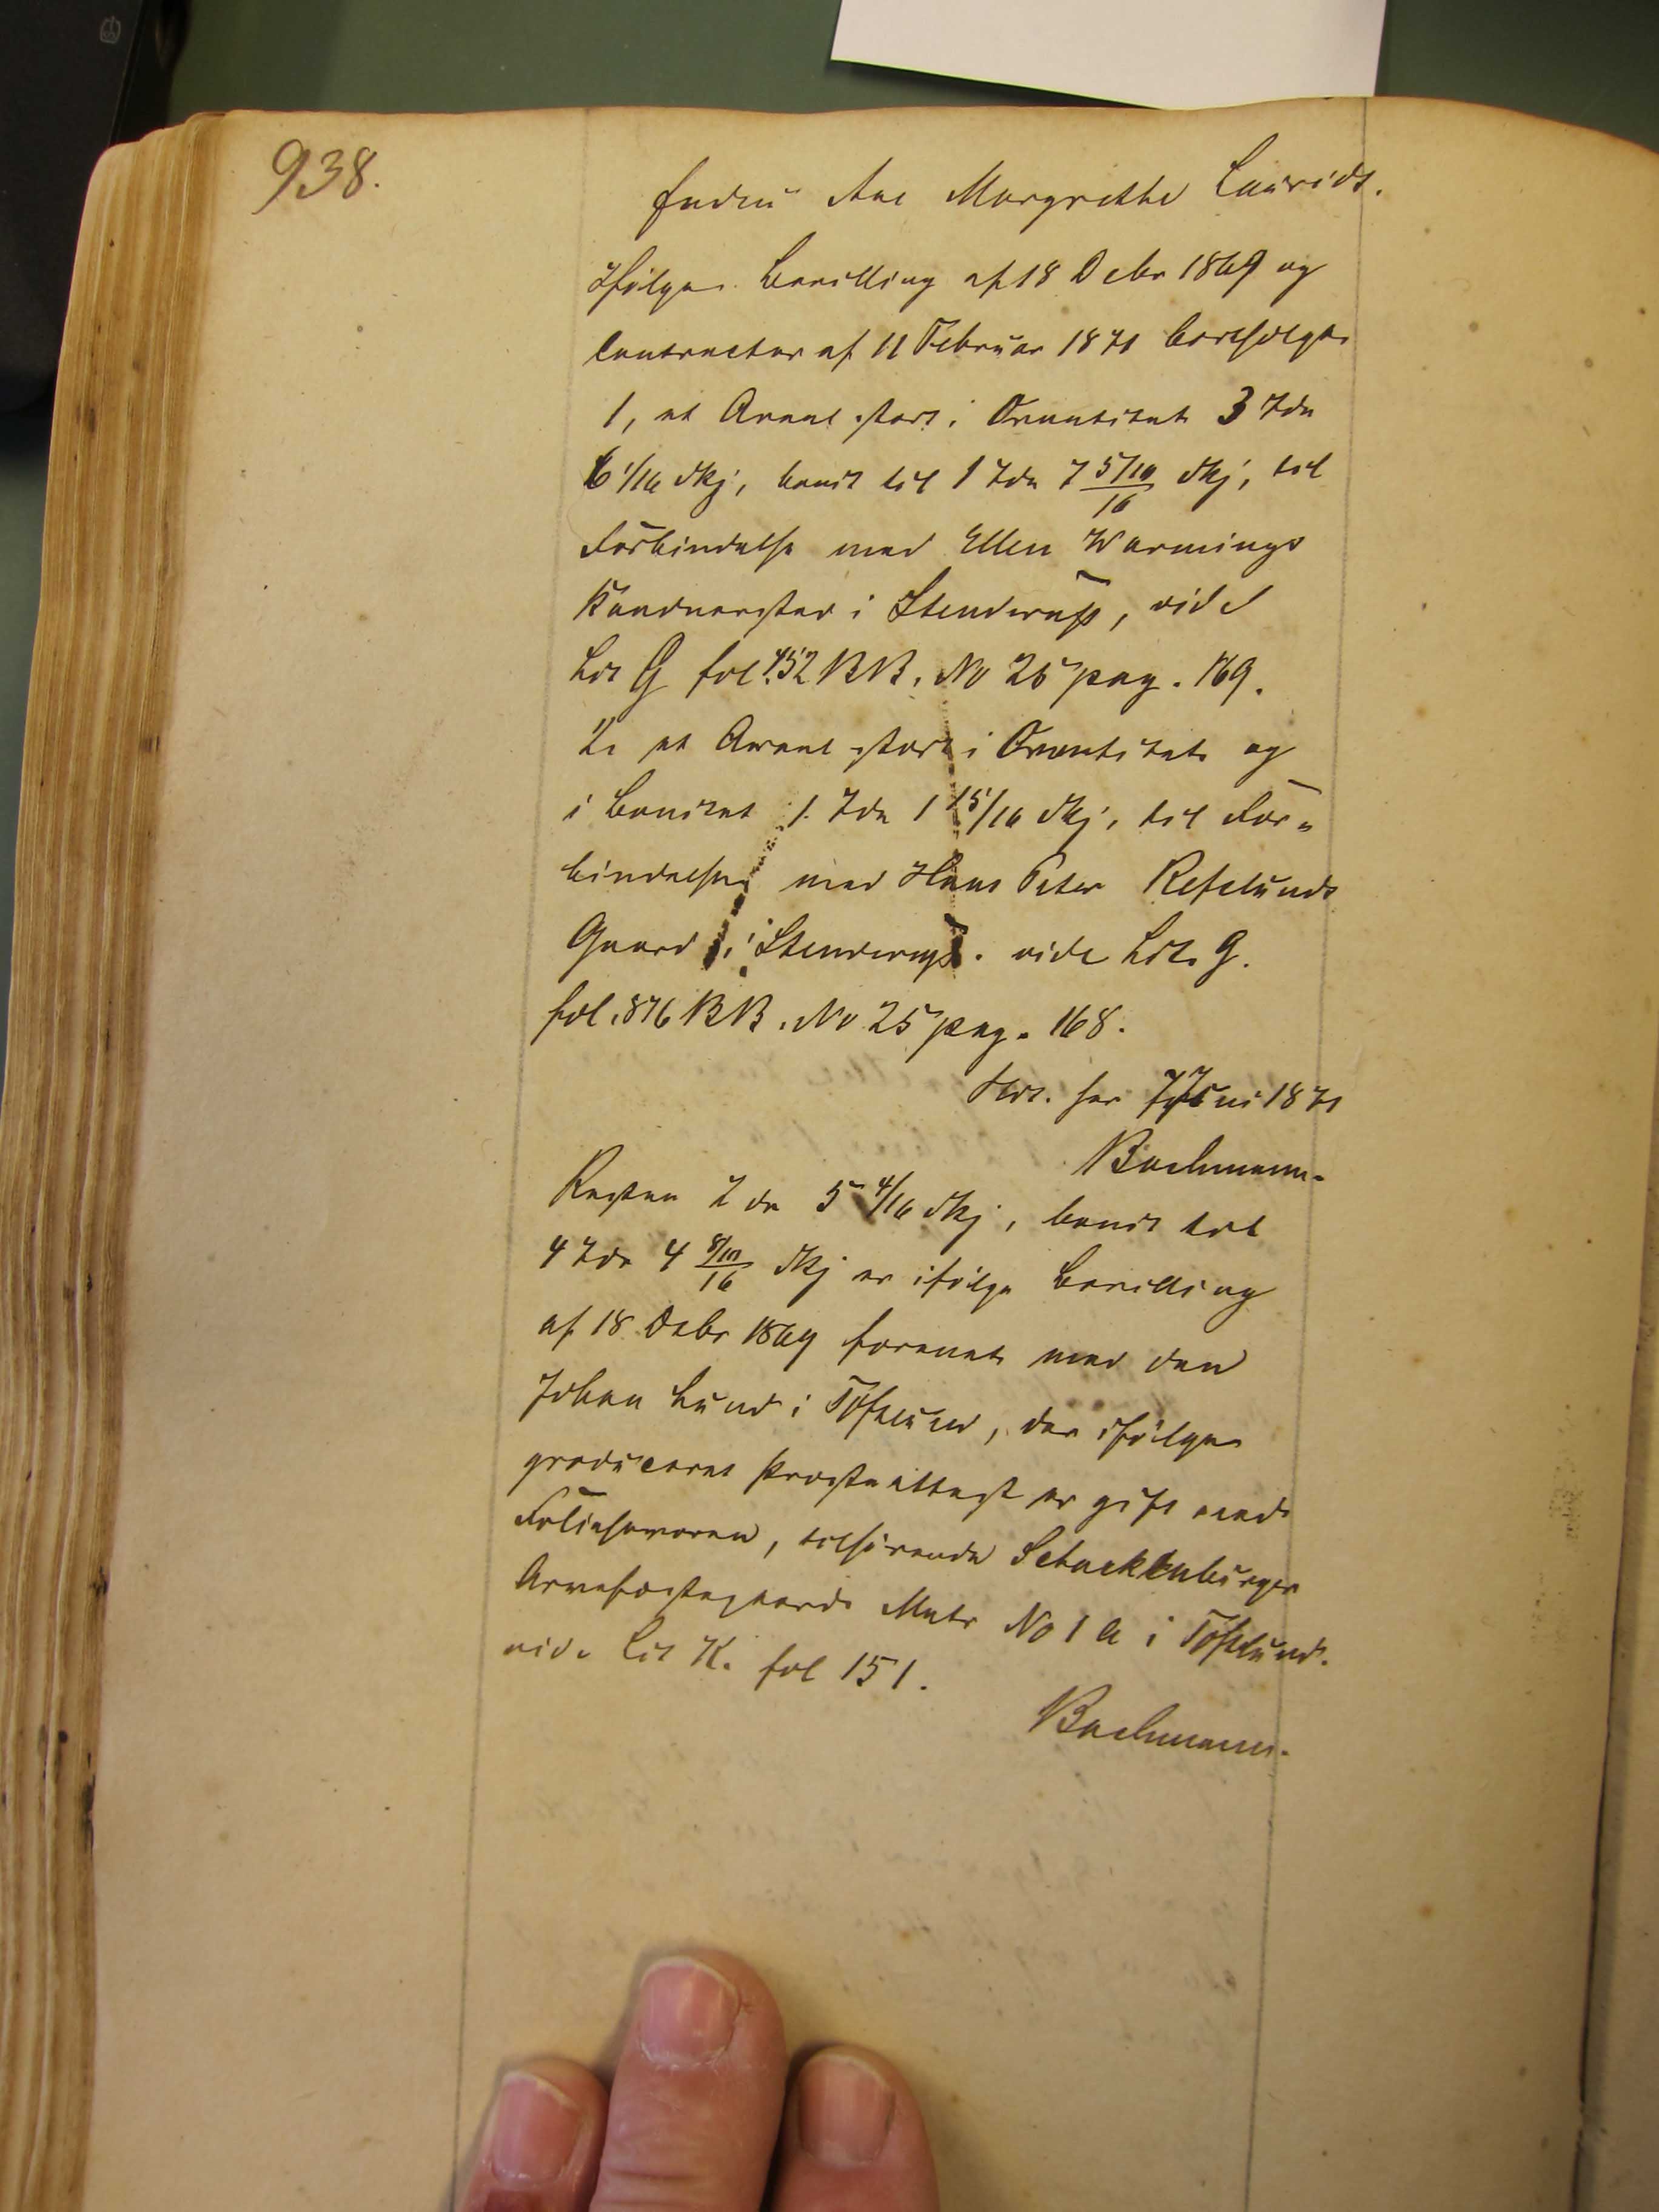 938.
Enduu Ane Margrethe Laurids.
Ifölge Bevilling af 18 Decbr 1869 og
Contracter af 11 Februar 1871 bortsolgt
1, et Areal stort i Qvantitet 3 Tdr
6 1/16 Skj, bonit til 1 Tdr 7 5/10/16 Skj, til
Forbindelse med Ellen Warmings
Kaadnersted i Stenderup, vide
Lit G fol. 452 BB. No 25 pag. 169.
2, et Areal stort i Qvantitet og
i Bonitet 1 Tdr 1 15/16 Skj, til For-
bindelse med Hans Peter Refslunds
Gaard i Stenderup. vide Lit. G.
fol. 876 BB. No 25 pag. 168.
7 Juni 1871
Bachmann.
Resten Tdr 5 4/16 Skj, bonit til
4 Tdr 4 8/10/16 Skj er ifölge Bevilling
af 18 Debr 1869 forenet med den
Johan Lund i Toftlund, der ifölge
produceret Præsteattest er gift med
Folieheveren, tilhörende Schackenburger
Arvefæstegaard Matr No 1 a i Toftlund.
vide Lit K. fol 151.
Bachmann.